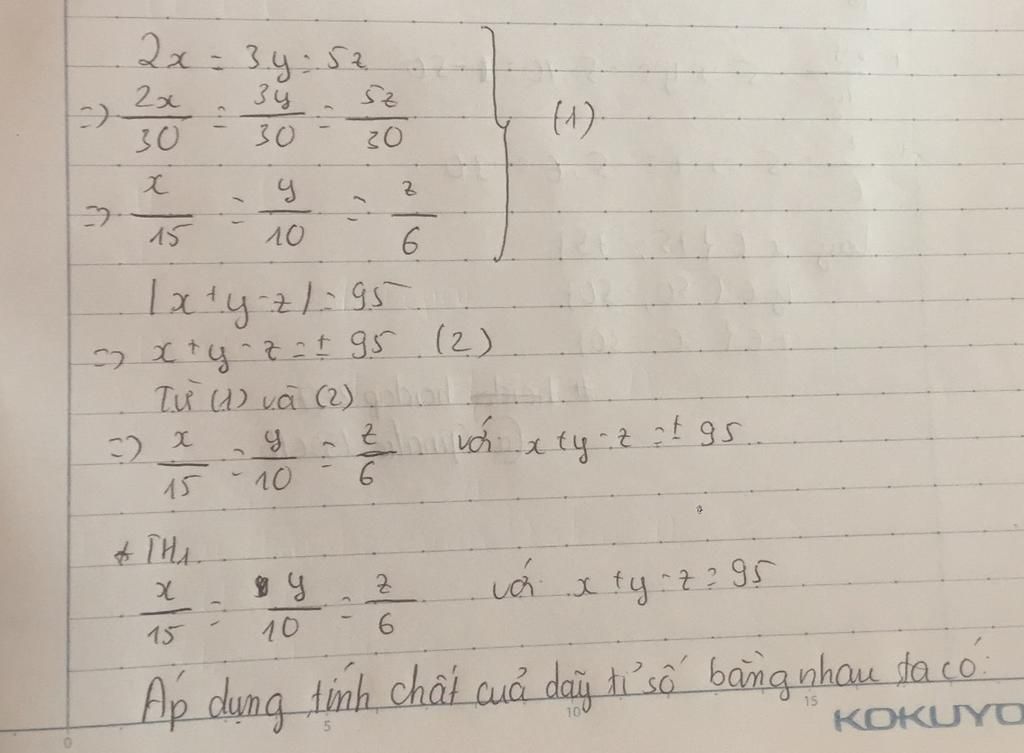 2x = 3y = 5z
=> 2x/30 = 3y/30 = 5z/30 (1)
=> x/15 = y/10 = z/6
|x+y-z| = 95
=> x+y-z = ± 95 (2)
Từ (1) và (2)
=> x/15 = y/10 = z/6 với x+y-z = ± 95
* TH1
x/15 = y/10 = z/6 với x+y-z = 95
Áp dụng tính chất cuả dãy tỉ số bằng nhau ta có:
0 5 10 15
KOKUYO